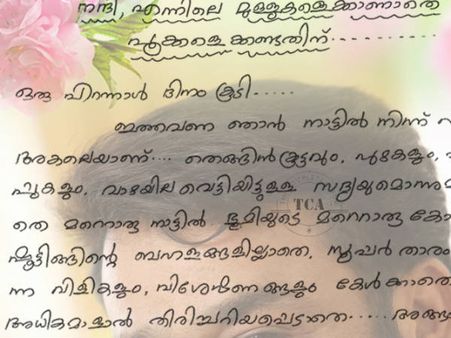 നന്ദി, എന്നിലെ മുള്ളുകളെക്കാണാതെ
പൂക്കളെ ക്കണ്ടതിന്...........
ഒരു പിറന്നാൾ ദിനം കൂടി......
ഇത്തവണ ഞാൻ നാട്ടിൽ നിന്ന്
അകലെയാണ്.... തെങ്ങിൻകൂട്ടവും, പുഴകളും,
വാഴയില വെട്ടിയിട്ടുള്ള സദ്യയുമൊന്നു
തെ മറ്റൊരു നാട്ടിൽ ഭൂമിയുടെ മറ്റൊരു കോ
ഷൂട്ടിങ്ങിന്റെ ബന്ധങ്ങളില്ലാതെ, സൂപ്പർ താരം
ന്ന വിളികളും, വിശേഷണങ്ങളും കേൾക്കാതെ
അധികമാളാൽ തിരിച്ചറിയപ്പെടാതെ......
TCA